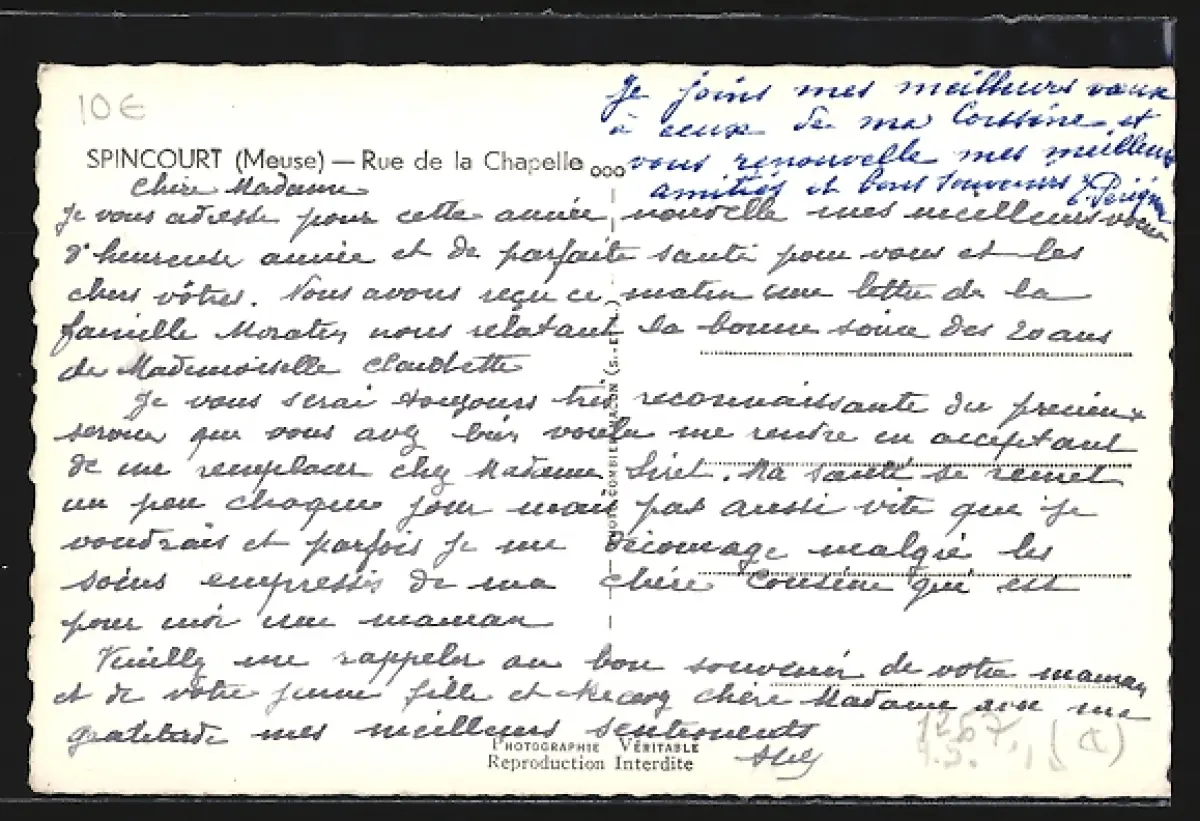 10€
Je joins mes meilleurs vœux
à ceux de ma Cousine et
vous renouvelle mes meilleures
amitiés et bons souvenirs
SPINCOURT (Meuse) — Rue de la Chapelle
Chère Madame
Je vous adresse pour cette année nouvelle mes meilleurs vœux
d'heureuse année et de parfaite santé pour vous et les
chers vôtres. Nous avons reçu ce matin une lettre de la
famille nous relatant la bonne soirée des 20 ans
de Mademoiselle Claudette
Je vous serai toujours très reconnaissante du précieux
service que vous avez bien voulu me rendre en acceptant
de me remplacer chez Madame Siret. Ma santé se remet
un peu chaque jour mais pas aussi vite que je
voudrais et parfois je me décourage malgré les
soins empressés de ma chère Cousine qui est
pour moi une maman
Veuillez me rappeler au bon souvenir de votre maman
et de votre jeune fille et recevez chère Madame avec ma
gratitude mes meilleurs sentiments
PHOTOGRAPHIE VÉRITABLE
Reproduction Interdite